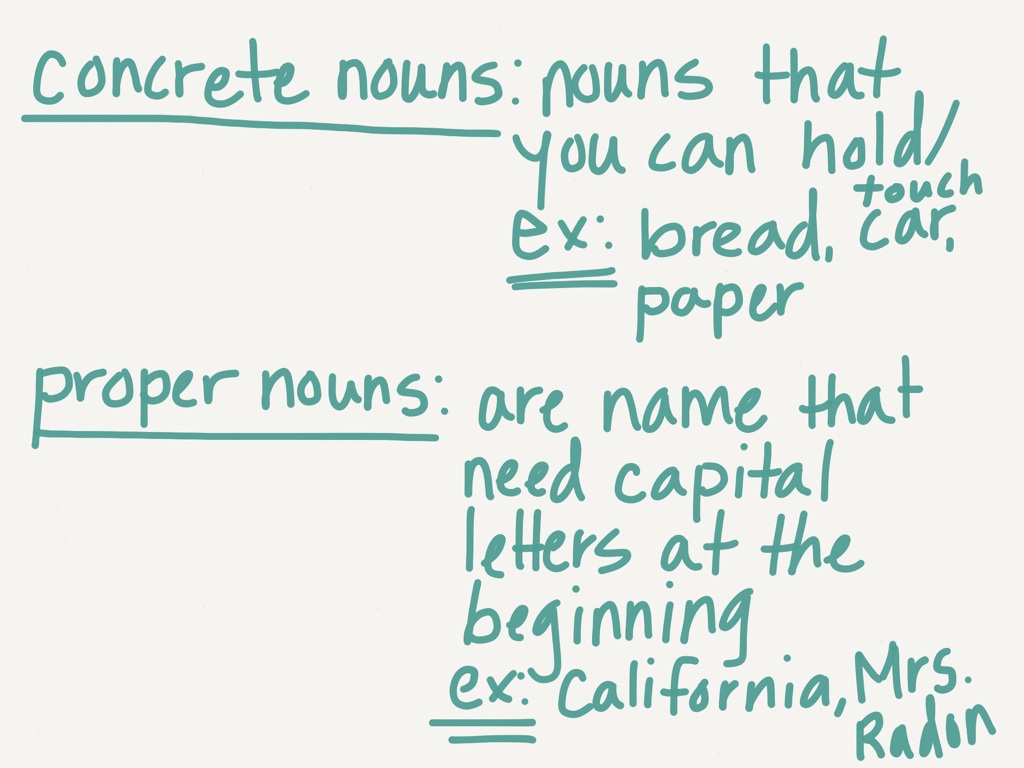 concrete nouns: nouns that
you can hold/
touch
ex: bread, car,
paper
proper nouns: are name that
need capital
letters at the
beginning
ex: California, Mrs.
Radon